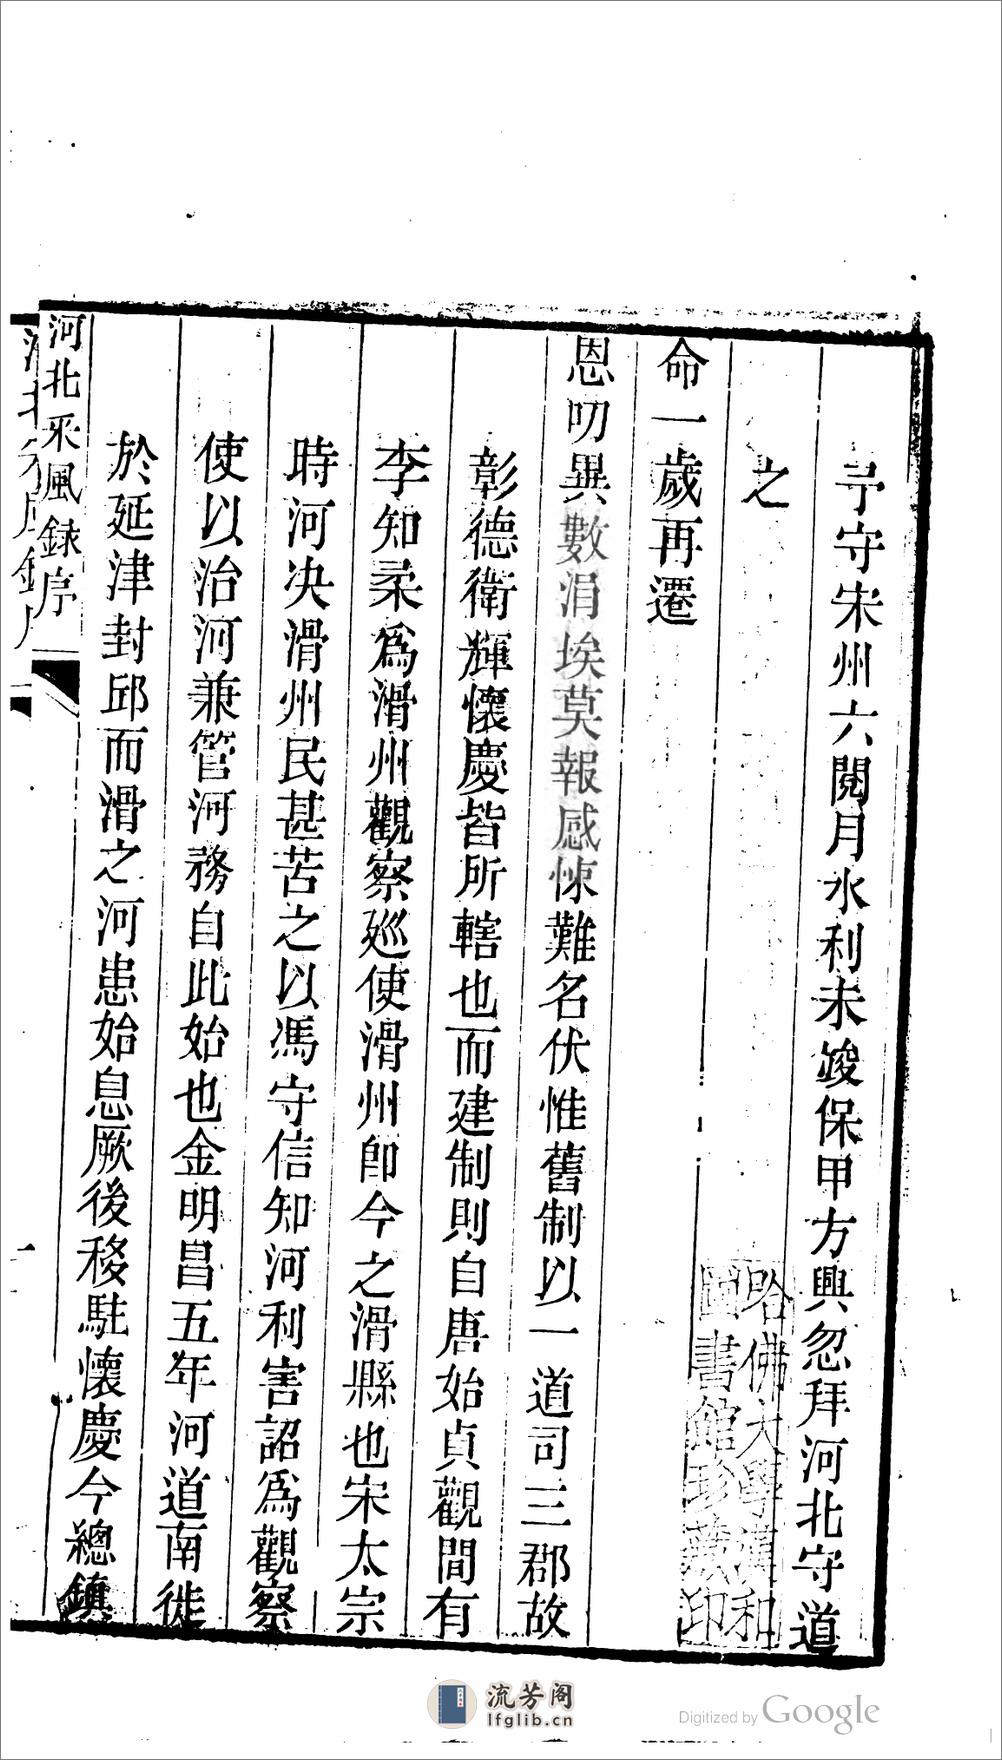 予守宋州六閱月水利未竣保甲方興忽拜河北守道
之
命一歲再遷
恩叨異數涓埃莫報感悚難名伏惟舊制以一道司三郡故
彰德衛輝懷慶皆所轄也而建制則自唐始貞觀間有
李知柔爲滑州觀察巡使滑州卽今之滑縣也宋太宗
時河决滑州民甚苦之以馮守信知河利害詔爲觀察
使以治河兼管河務自此始也金明昌五年河道南徙
於延津封邱而滑之河患始息厥後移駐懷慶今總鎮
河北采風錄序
哈佛大學漢和
圖書館珍藏印
流芳阁
lfglib.cn
Digitized by Google